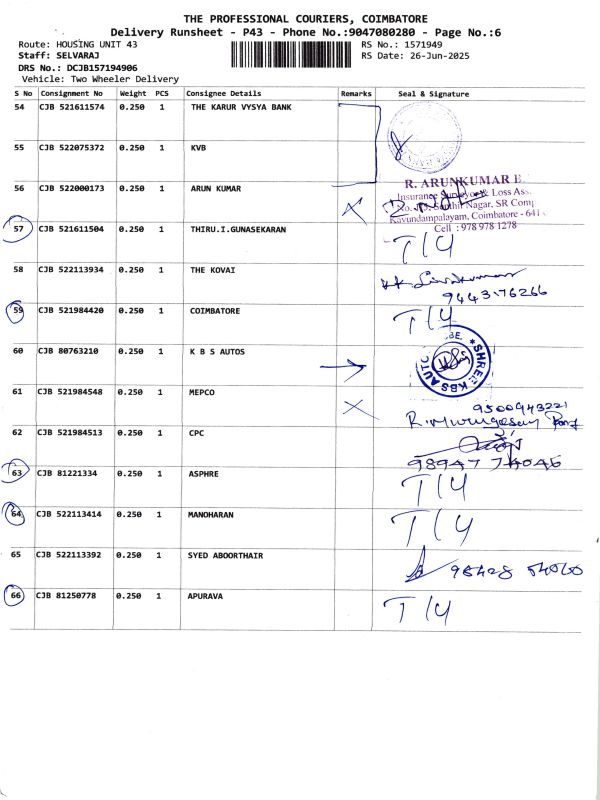 THE PROFESSIONAL COURIERS, COIMBATORE
Delivery Runsheet - P43 - Phone No.:9047080280 - Page No.:6
Route: HOUSING UNIT 43 RS No.: 1571949
Staff: SELVARAJ RS Date: 26-Jun-2025
DRS No.: DCJB157194906
Vehicle: Two Wheeler Delivery
S No Consignment No Weight PCS Consignee Details Remarks Seal & Signature
54 CJB 521611574 0.250 1 THE KARUR VYSYA BANK
55 CJB 522075372 0.250 1 KVB
R. ARUNKUMAR
56 CJB 522000173 0.250 1 ARUN KUMAR
Insurance Surveyor & Loss Ass
Nagar, SR Comp
Kavundampalayam, Coimbatore - 641
Cell : 978 978 1278
57 CJB 521611504 0.250 1 THIRU.I.GUNASEKARAN T/4
58 CJB 522113934 0.250 1 THE KOVAI
9443176266
59 CJB 521984420 0.250 1 COIMBATORE T/4
60 CJB 80763210 0.250 1 K B S AUTOS
SHREE KBS AUTO
61 CJB 521984548 0.250 1 MEPCO
9500943221
R. Murugesan
62 CJB 521984513 0.250 1 CPC
98947 74046
63 CJB 81221334 0.250 1 ASPHRE T/4
64 CJB 522113414 0.250 1 MANOHARAN T/4
65 CJB 522113392 0.250 1 SYED ABOORTHAIR
66 CJB 81250778 0.250 1 APURAVA T/4